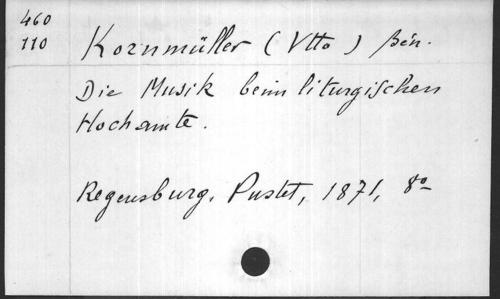 460
110
Kornmüller (Utto) Bén.
Die Musik beim liturgischen
Hochamte.
Regensburg, Pustet, 1871, 8º